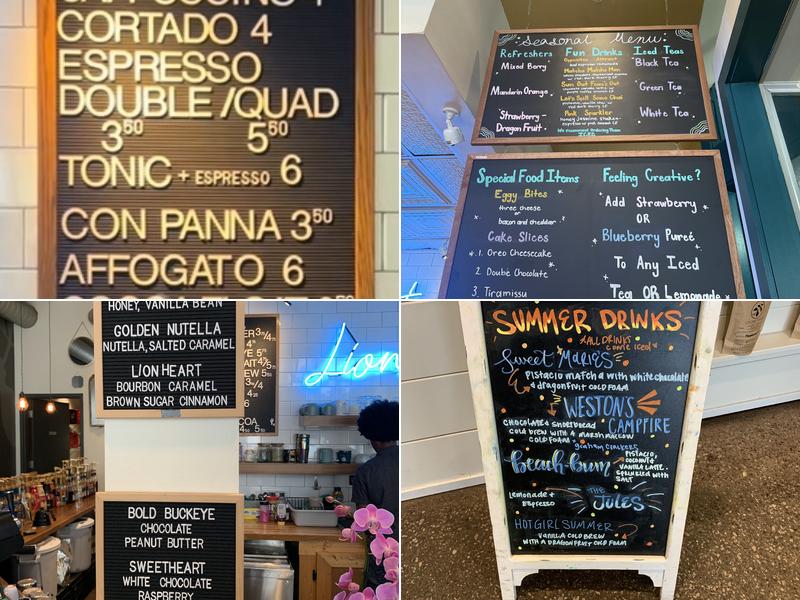 CORTADO 4
ESPRESSO
DOUBLE/QUAD
3⁵⁰ 5⁵⁰
TONIC + ESPRESSO 6
CON PANNA 3⁵⁰
AFFOGATO 6
Seasonal Menu:
Refreshers
Mixed Berry
Mandarin Orange
Strawberry-
Dragon Fruit
Fun Drinks
Opposites Attract
Matcha Matcha Man
Sun's Out Fun's Out
Let's Spill Some Chai
Pink Sparkler
Iced Teas
Black Tea
Green Tea
White Tea
Special Food Items
Eggy Bites
three cheese
or
bacon and cheddar
Cake Slices
1. Oreo Cheesecake
2. Double Chocolate
3. Tiramissu
Feeling Creative?
Add Strawberry
OR
Blueberry Pureé
To Any Iced
Tea OR Lemonade
HONEY, VANILLA BEAN
GOLDEN NUTELLA
NUTELLA, SALTED CARAMEL
LION HEART
BOURBON CARAMEL
BROWN SUGAR CINNAMON
BOLD BUCKEYE
CHOCOLATE
PEANUT BUTTER
SWEETHEART
WHITE CHOCOLATE
RASPBERRY
Lion
SUMMER DRINKS
*ALL DRINKS
come iced*
Sweet Marie's
Pistacio matcha with white chocolate
+ dragonfruit cold foam
WESTON'S
CAMPFIRE
chocolate + shortbread
cold brew with a marshmallow
cold foam +
graham crackers
beach-bum
Pistacio,
coconut +
vanilla latte.
sprinkled with
salt
Lemonade +
Espresso
THE
Jules
HOTGIRL SUMMER
vanilla cold brew
with a dragonfruit cold foam